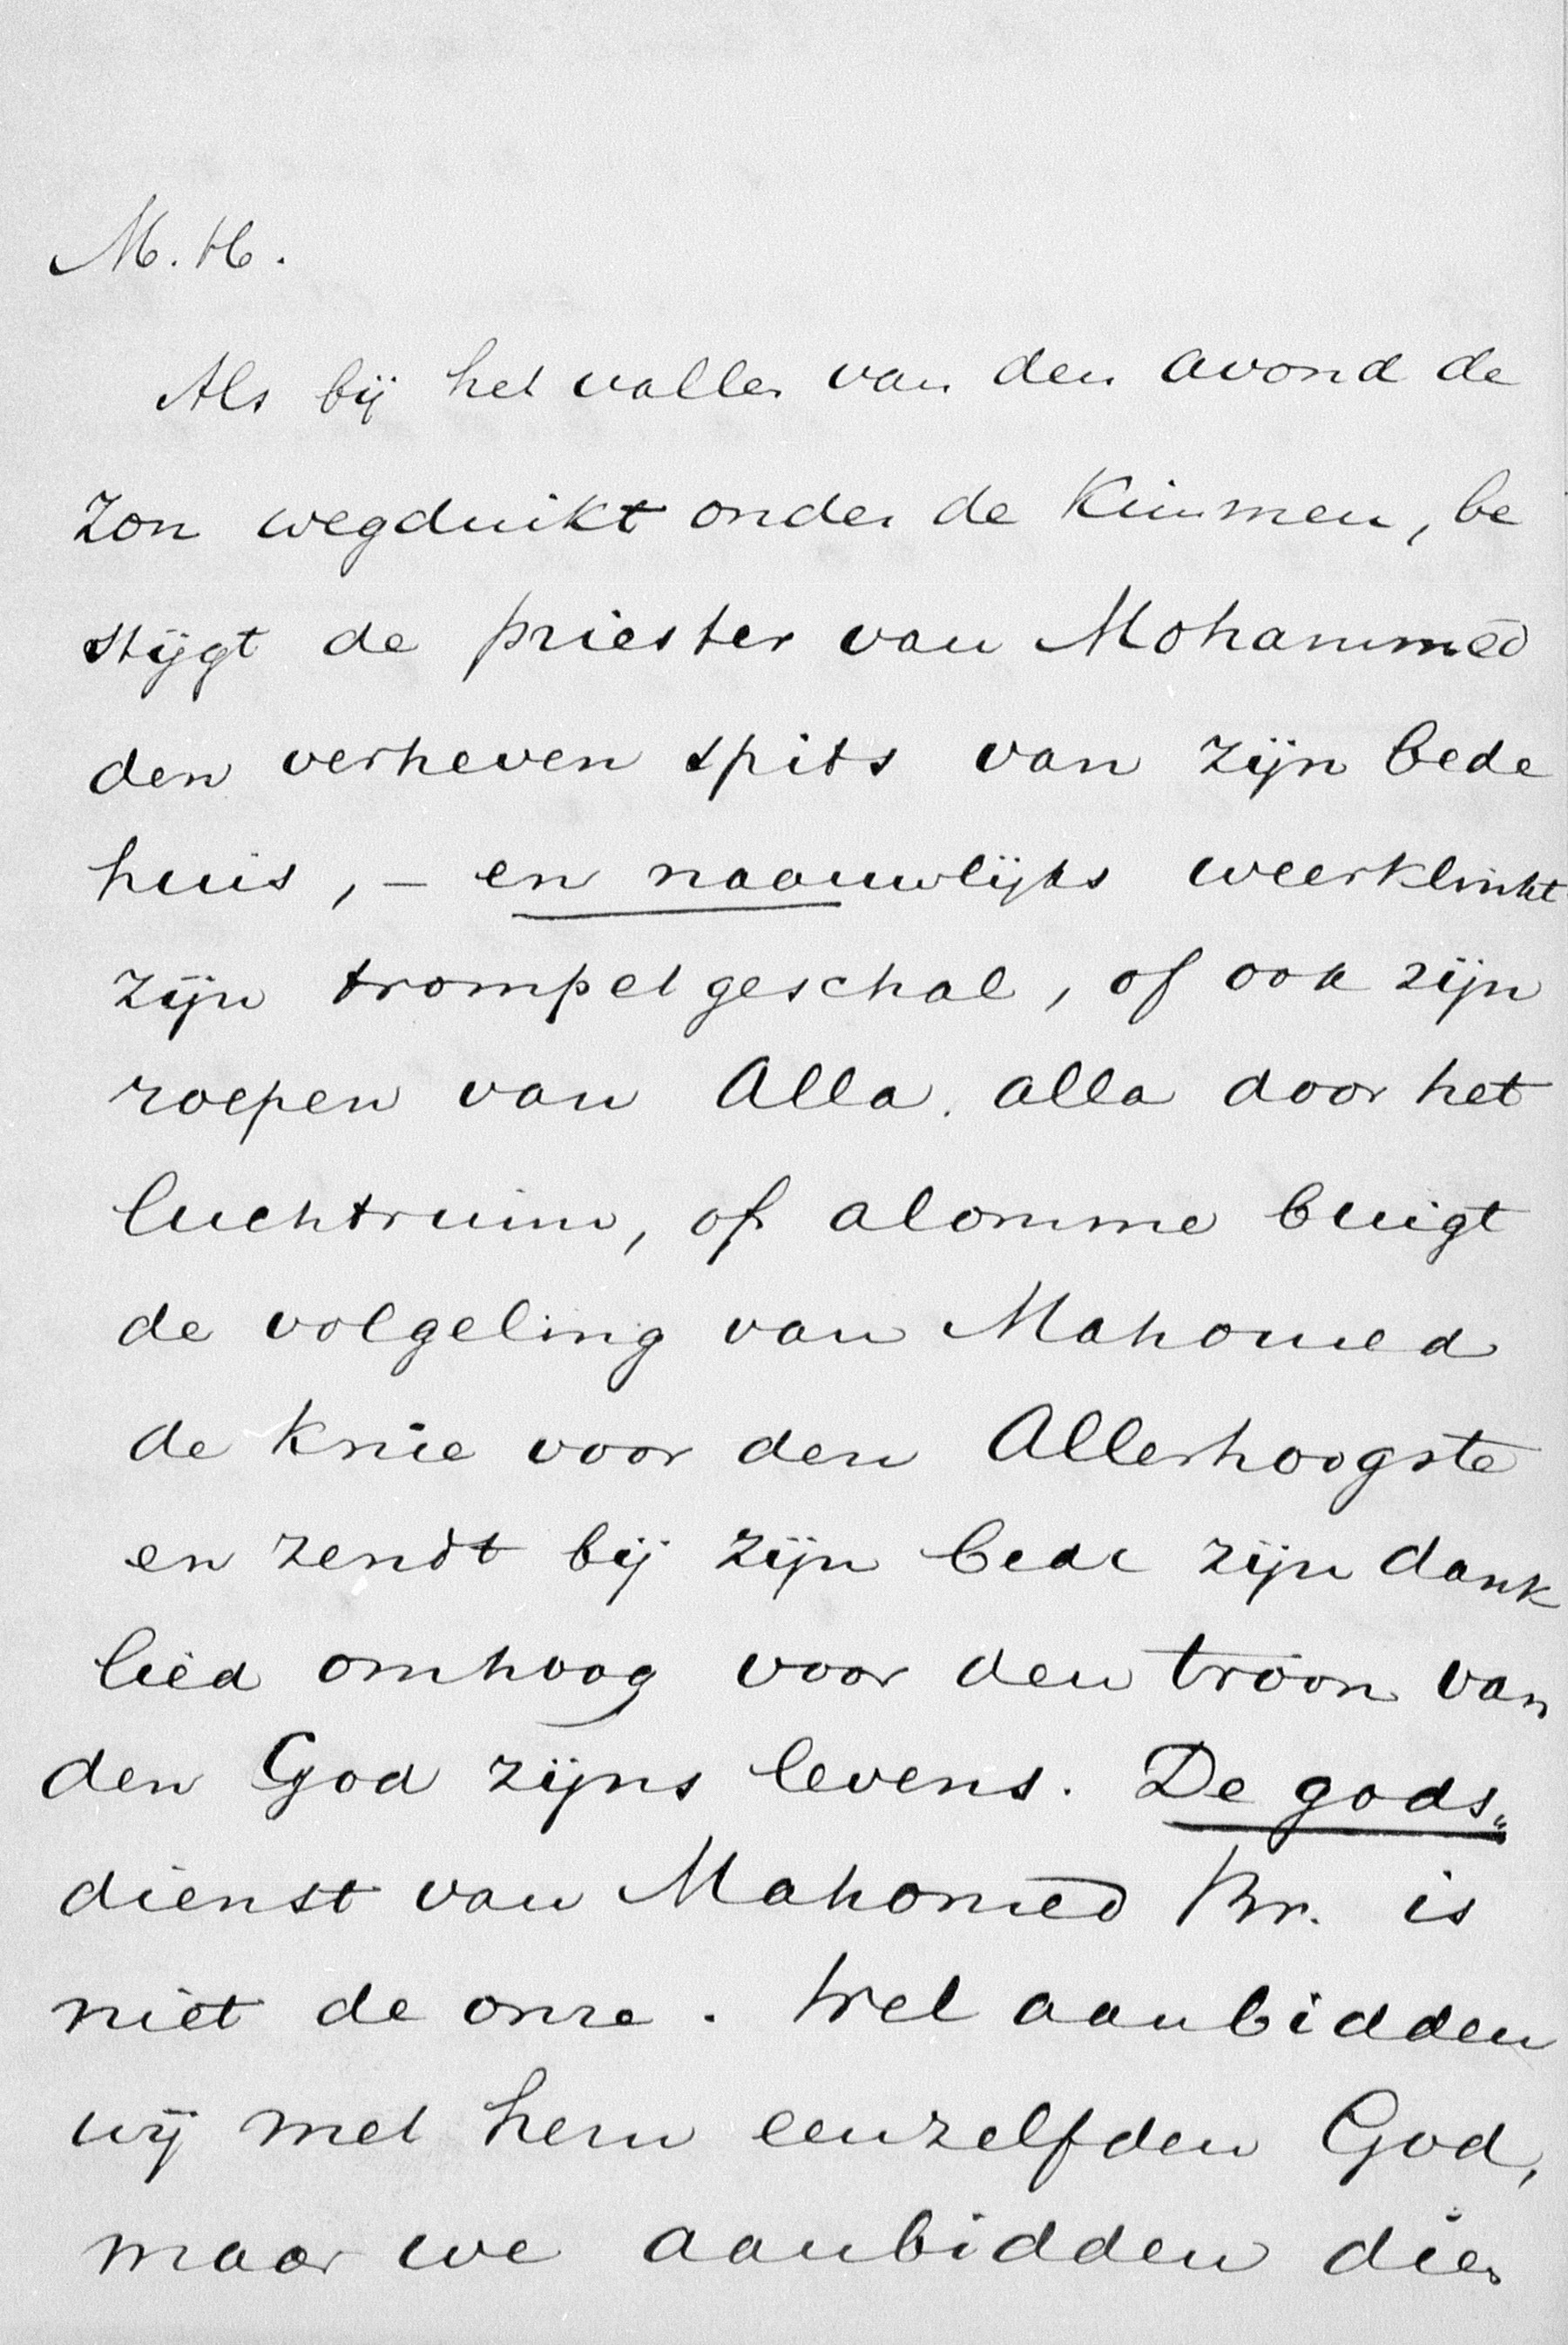 M. H.
Als bij het vallen van den avond de
zon wegduikt onder de Kimmen, be
stijgt de priester van Mohammed
den verheven spits van zijn bede
huis, – en naauwlijks weerklinkt
zijn trompetgeschal, of ook zijn
roepen van Alla. alla door het
luchtruim, of alomme buigt
de volgeling van Mahomed
de knie voor den Allerhoogste
en zendt bij zijn bede zijn dank
lied omhoog voor den troon van
den God zijns levens. De gods„
dienst van Mahomed Br. is
niet de onze. Wel aanbidden
wij met hem eenzelfden God,
maar we aanbidden dien